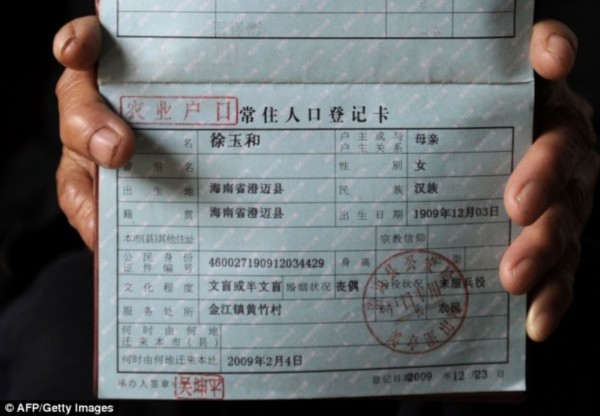 农业户口 常住人口登记卡
名 徐玉和 户主或与户主关系 母亲
曾用名 性别 女
出生地 海南省澄迈县 民族 汉族
籍贯 海南省澄迈县 出生日期 1909年12月03日
本市(县)其他住址 宗教信仰
公民身份证件编号 460027190912034429 身高
文化程度 文盲或半文盲 婚姻状况 丧偶 兵役状况 未服兵役
服务处所 金江镇黄竹村 农民
何时由何地迁来本市(县)
何时由何地迁来本址 2009年2月4日
承办人签章 吴坤平 登记日期 2009年12月23日
© AFP/Getty Images